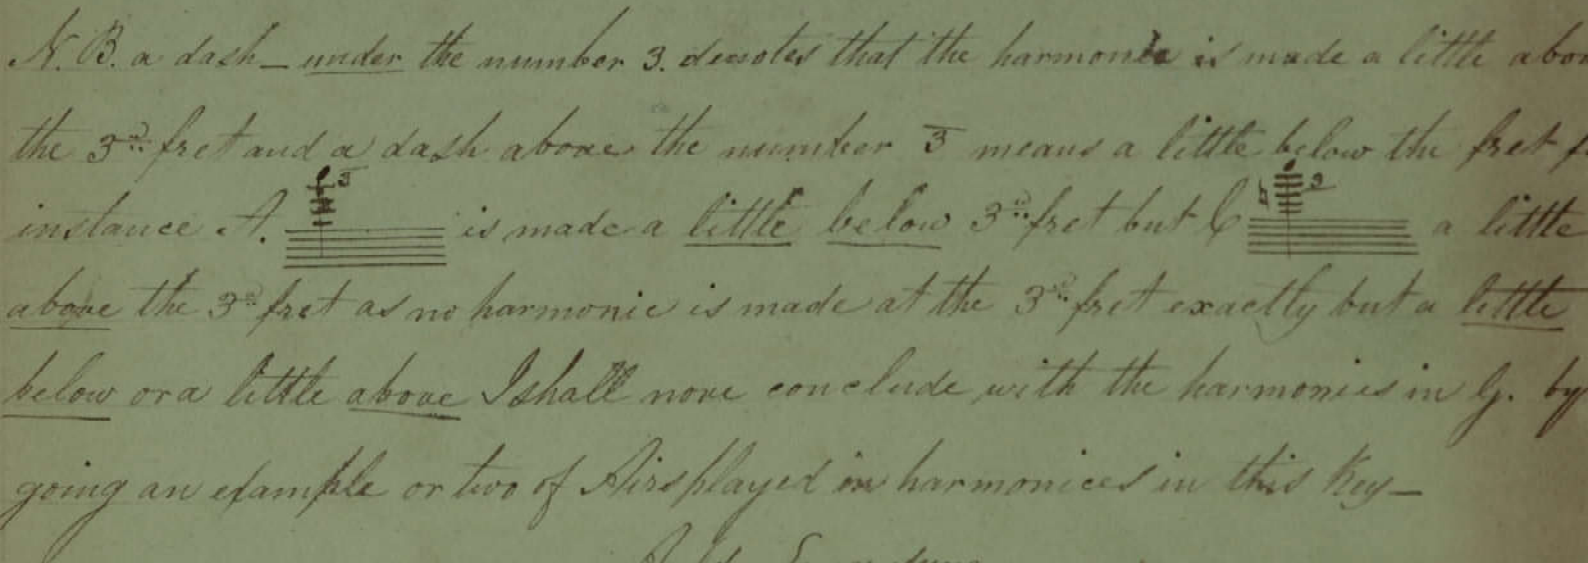 N.B. a dash – under the number 3. denotes that the harmonic is made a little abov
the 3rd fret and a dash above the number 3̅ means a little below the fret f
instance A. 3̅ is made a little below 3rd fret but 3 a little
above the 3rd fret as no harmonic is made at the 3rd fret exactly but a little
below or a little above I shall now conclude with the harmonics in G. by
going an example or two of Airs played in harmonices in this Key –